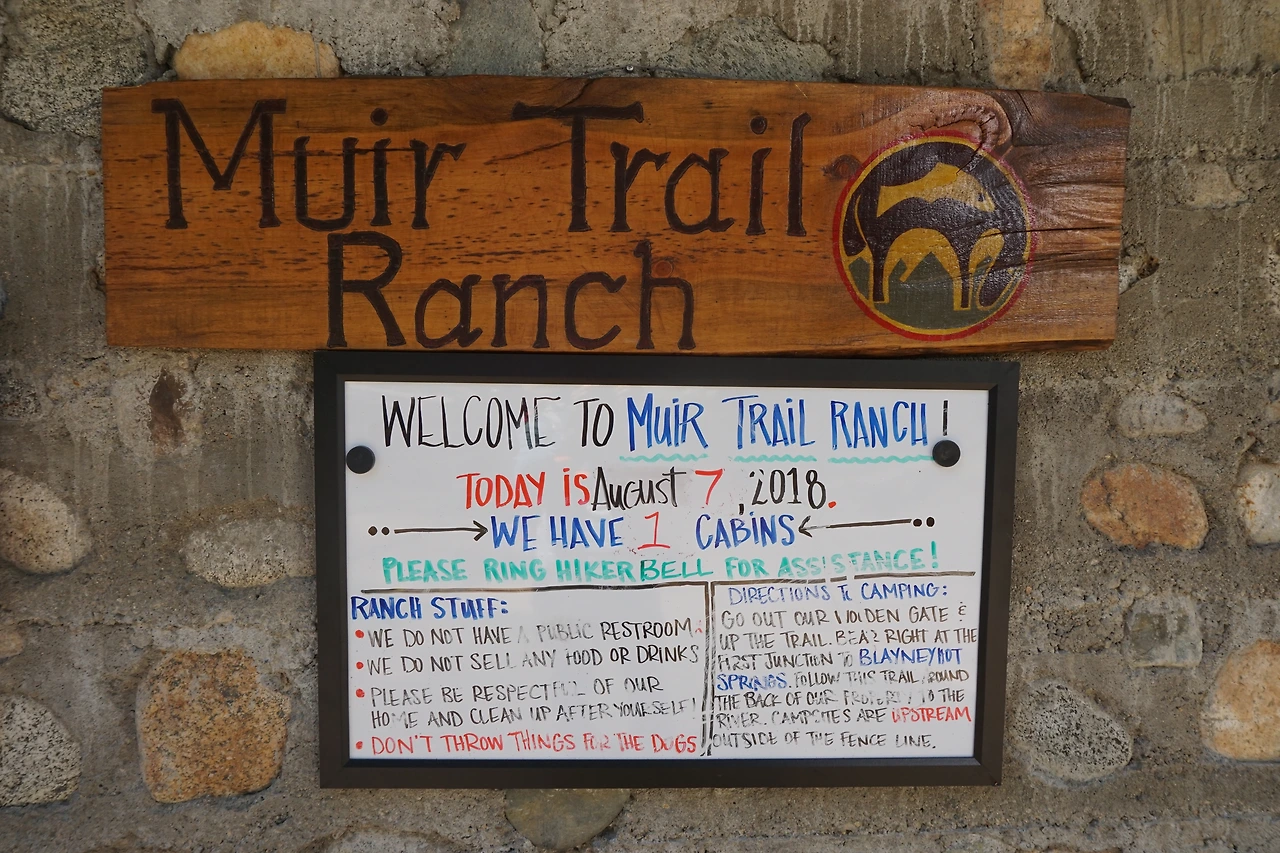 Muir Trail
Ranch
WELCOME TO MUIR TRAIL RANCH!
TODAY IS August 7, 2018.
WE HAVE 1 CABINS
PLEASE RING HIKER BELL FOR ASSISTANCE!
RANCH STUFF:
• WE DO NOT HAVE A PUBLIC RESTROOM.
• WE DO NOT SELL ANY FOOD OR DRINKS
• PLEASE BE RESPECTFUL OF OUR
HOME AND CLEAN UP AFTER YOURSELF!
• DON'T THROW THINGS FOR THE DOGS
DIRECTIONS TO CAMPING:
GO OUT OUR WOODEN GATE &
UP THE TRAIL. BEAR RIGHT AT THE
FIRST JUNCTION TO BLAYNEY HOT
SPRINGS. FOLLOW THIS TRAIL AROUND
THE BACK OF OUR PROPERTY TO THE
RIVER. CAMPSITES ARE UPSTREAM
OUTSIDE OF THE FENCE LINE.